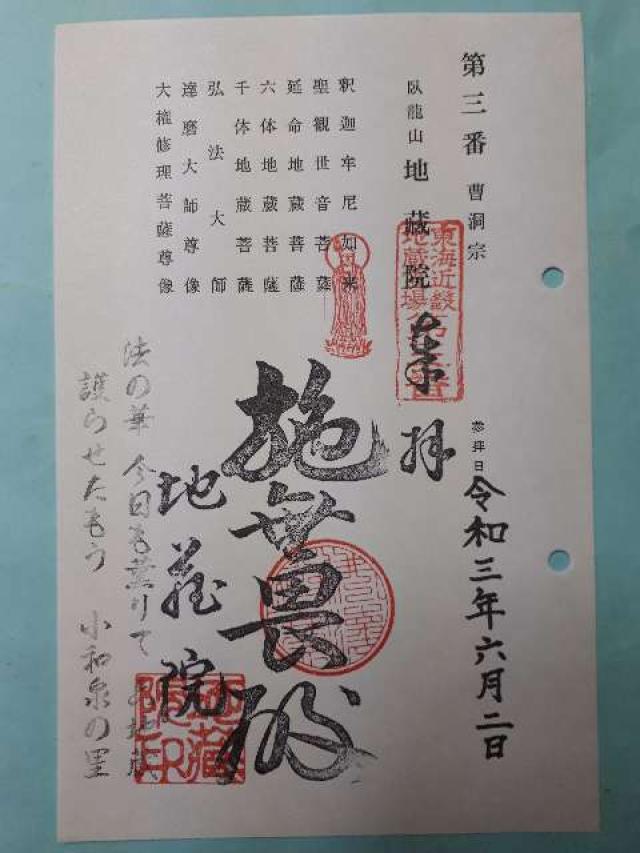 第三番 曹洞宗
臥龍山 地蔵院
奉拝
参拝日 令和三年六月二日
釈迦牟尼如来
聖観世音菩薩
延命地蔵菩薩
六体地蔵菩薩
千体地蔵菩薩
弘法大師
達磨大師尊像
大権修理菩薩尊像
東海近畿地蔵霊場
施無畏殿
地蔵院
法の華 今日も薫りて
護らせたもう 小和泉の里